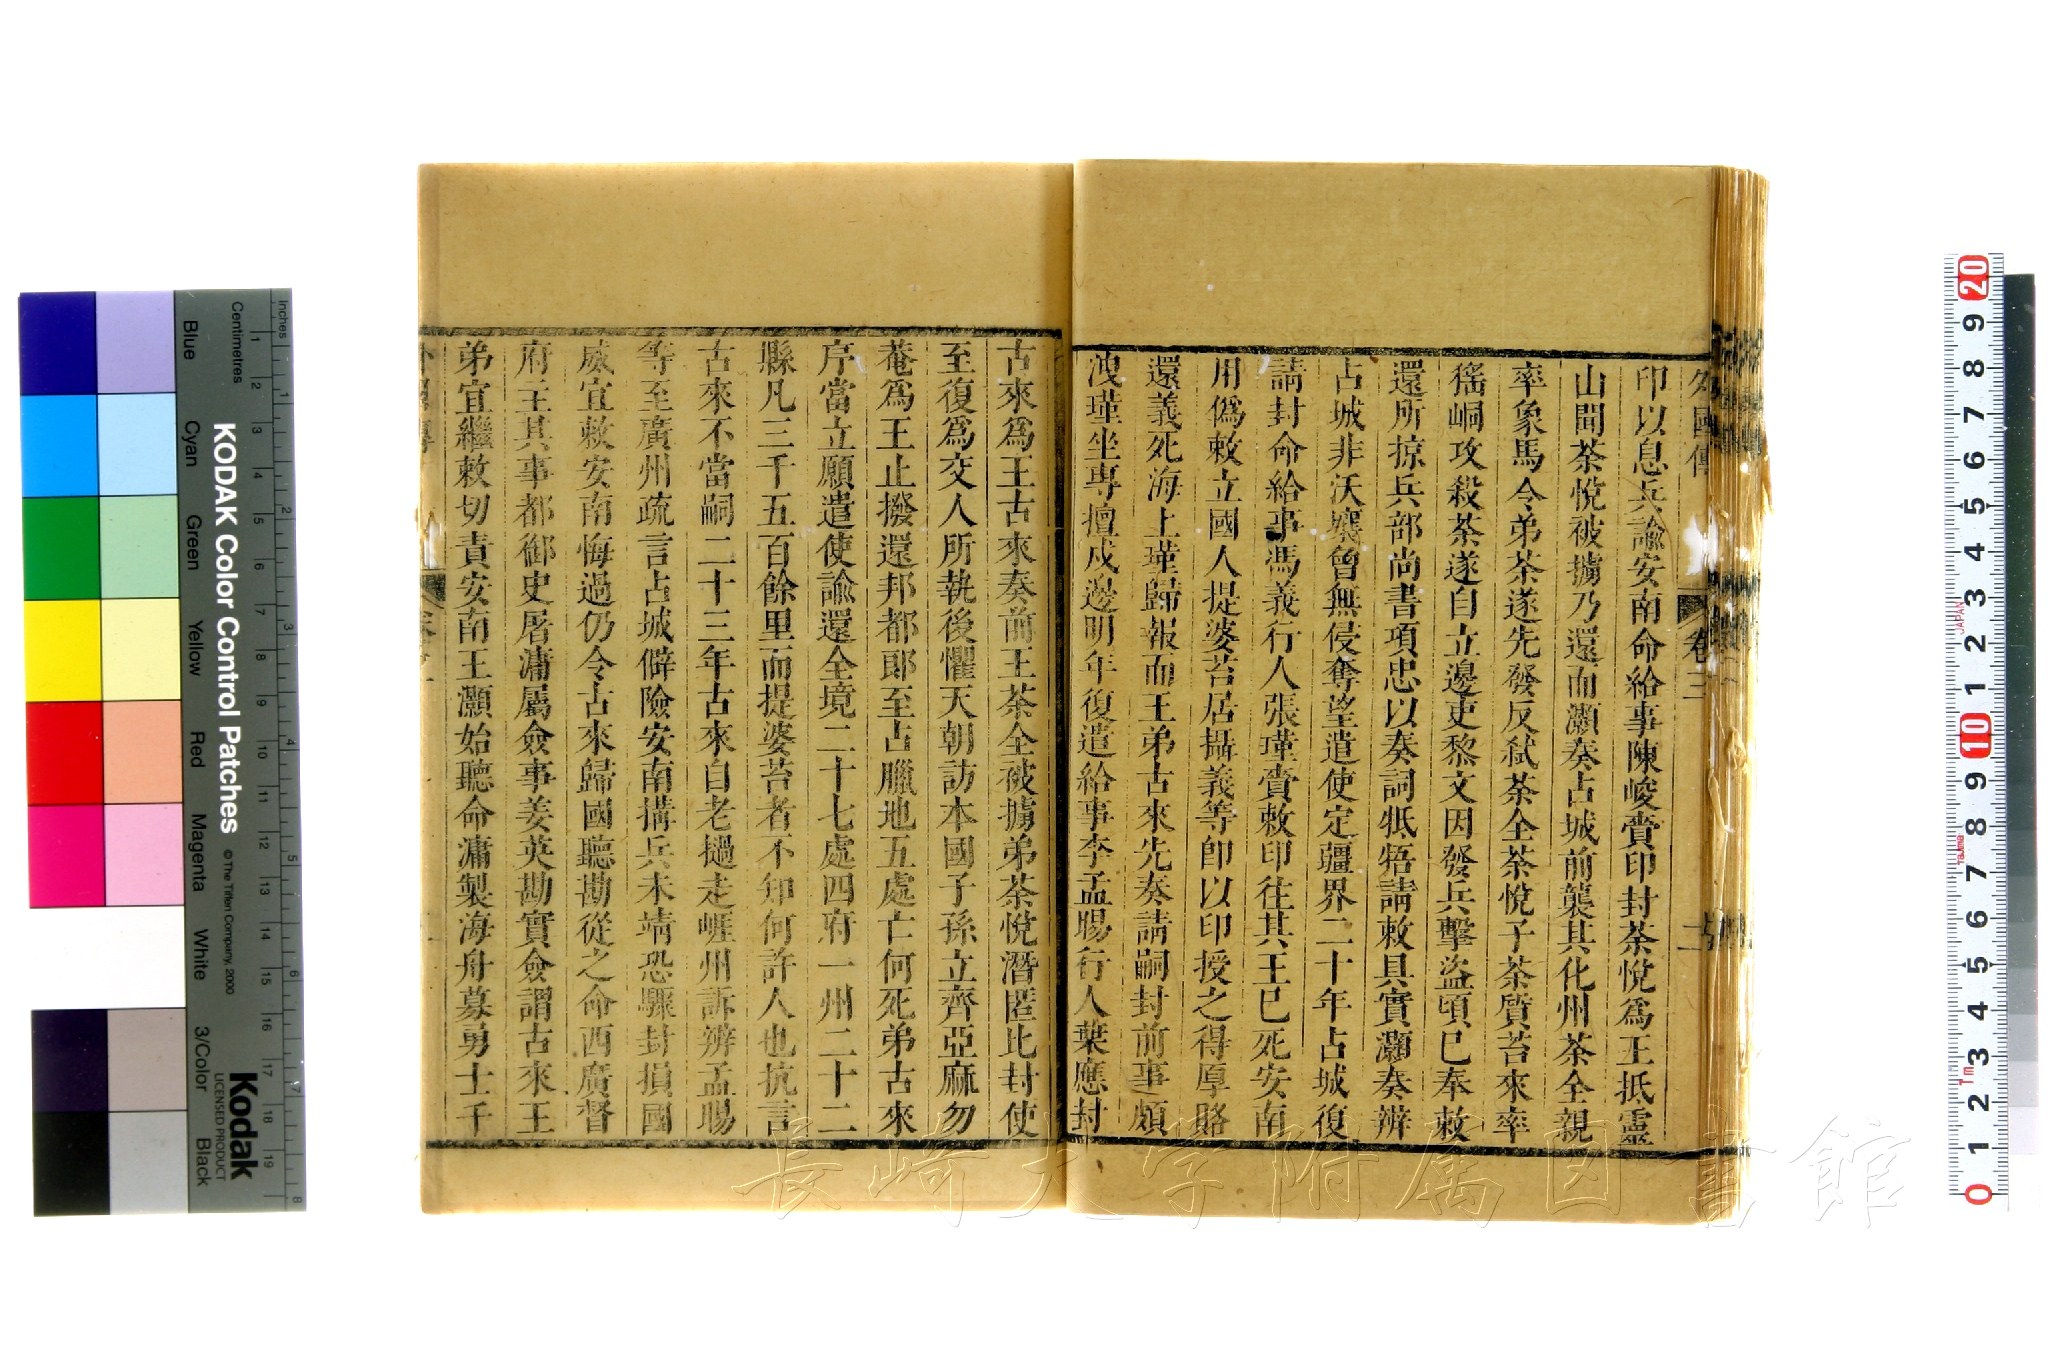 外國傳
卷三
印以息兵諭安南命給事陳峻賫印封荼悅爲王抵靈
山間荼悅被擄乃還而灝奏占城前襲其化州荼全親
率象馬令弟荼遂先發反弑荼全荼悅子荼質苔來率
猺峒攻殺荼遂自立邊吏黎文因發兵擊盜頃已奉敕
還所掠兵部尚書項忠以奏詞牴牾請敕具實灝奏辨
占城非沃壤曾無侵奪望遣使定疆界二十年占城復
請封命給事馮義行人張瑾賫敕印往其王已死安南
用僞敕立國人提婆苔居攝義等卽以印授之得厚賂
還義死海上瑾歸報而王弟古來先奏請嗣封前事頗
洩瑾坐專擅戍邊明年復遣給事李孟暘行人葉應封
古來爲王古來奏前王荼全被擄弟荼悅潛匿比封使
至復爲交人所執後懼天朝訪本國子孫立齊亞麻勿
菴爲王止撥還邦都郞至占臘地五處亡何死弟古來
序當立願遣使諭還全境二十七處四府一州二十二
縣凡三千五百餘里而提婆苔者不知何許人也抗言
古來不當嗣二十三年古來自老撾走崕州訴辨孟暘
等至廣州疏言占城僻險安南搆兵未靖恐驟封損國
威宜敕安南悔過仍令古來歸國聽勘從之命西廣督
府王其事都御史屠滽屬僉事姜英勘實僉謂古來王
弟宜繼敕切責安南王灝始聽命滽製海舟募勇士千
KODAK Color Control Patches
© The Tiffen Company, 2000
Kodak
LICENSED PRODUCT
Inches
Centimetres
Blue
Cyan
Green
Yellow
Red
Magenta
White
3/Color
Black
長崎大学附属図書館